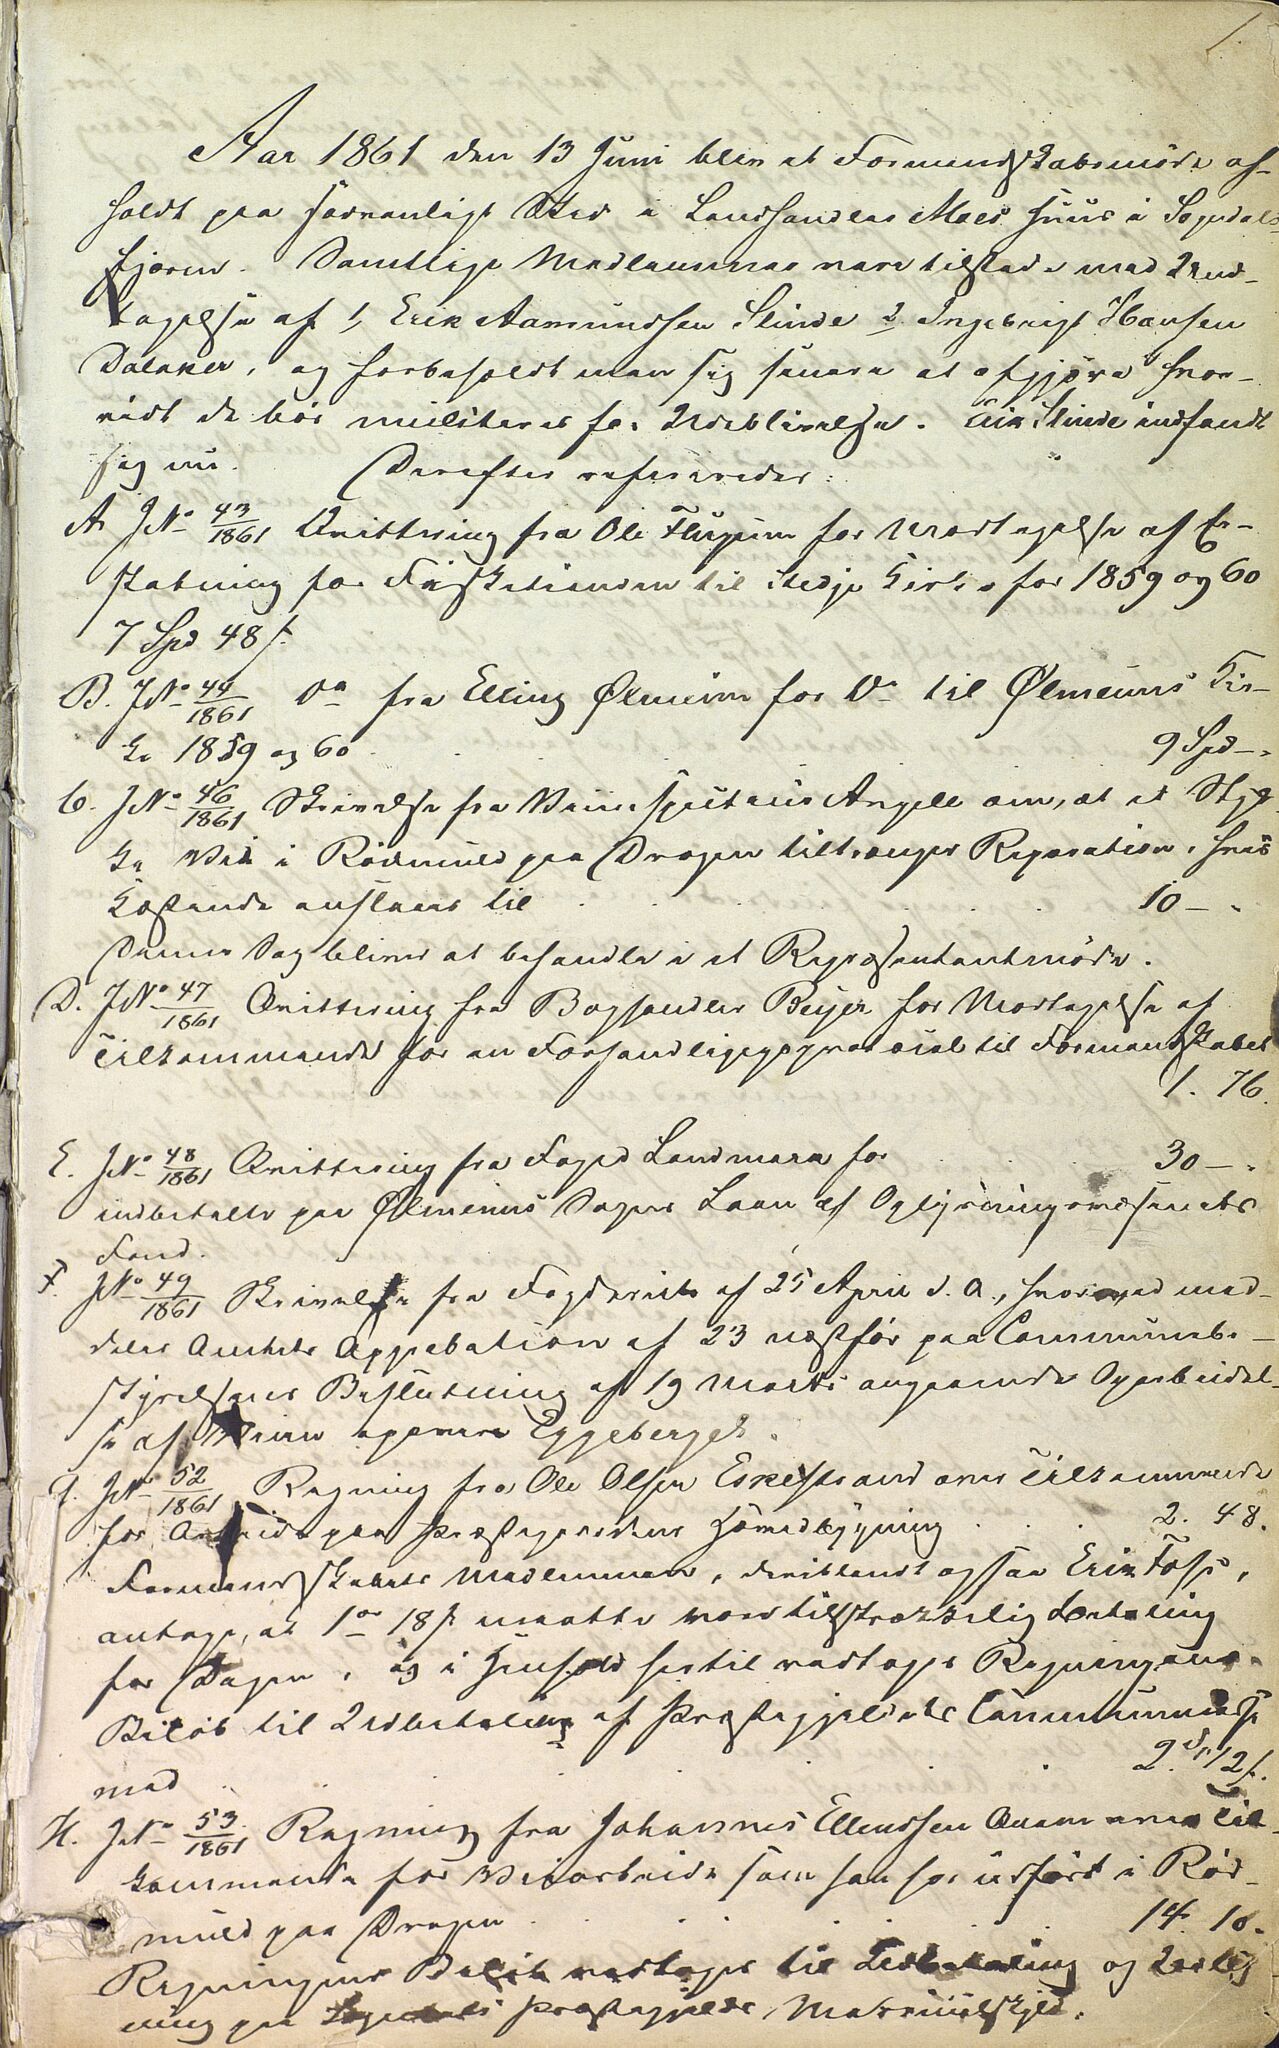 1.
Aar 1861 den 13 Juni blev et Formandskabsmöde af-
holdt paa sædvanligt Sted i Landhandler Moes Huus i Sogndals-
fjæren. Samtlige Medlemmer vare tilstede med Und-
tagelse af 1, Erik Aamundsen Slinde 2 Ingebrigt Hansen
Dalaker, og forbeholdt man sig senere at afgjöre hvor-
vidt de bör mulkteres for Udeblivelse. Erik Slinde indfandt
sig nu. Derefter refereredes:
A. JNo 43/1861 Qvittering fra Ole Flugeim for Modtagelse af Er-
statning for Fisketienden til Stedje Kirke for 1859 og 60
7 Spd 48 s.
B. JNo 44/1861 Do fra Elling Ølmeim for Do til Ølmeims Kir-
ke 1859 og 60 9 Spd -.
C. JNo 46/1861 Skrivelse fra Veiinspecteur Angell om, at et Styk-
ke Vei i Rödmuld paa Dragen tiltrænger Reparation, hvis
Kostende anslaaes til 10 - .
Denne Sag bliver at behandle i et Repræsentantmöde.
D. JNo 47/1861 Qvittering fra Boghandler Beyer for Modtagelse af
Tilkommende for en Forhandlingsprotocol til Formandskabet
1. 76.
E. JNo 48/1861 Qvittering fra Foged Landmark for 30 - .
indbetalte paa Ølmeims Sogns Laan af Oplysningsvæsenets
Fond.
F. JNo 49/1861 Skrivelse fra Fogderiet af 25 April d. A., hvorved med-
deles Amtets Approbation af 23 næstfør paa Communebe-
styrelsens Beslutning af 19 Marts angaaende Oparbeidel-
se af Veien Eggeberget.
G. JNo 52/1861 Regning fra Ole Olsen Eskestrand om Tilkommende
for Arbeide paa Præstegaardens 2. 48.
Formandskabets Medlemmer, deriblandt ogsaa Erik Foss,
antoge, at 1 ort 18 s maatte være tilstrækkelig Betaling
for Dagen, og i Henhold hertil vedtoges Regningens
Belöb til Udbetaling af Præstegjeldets Communecasse
med 2. 12 s.
H. JNo 53/1861 Regning fra Johannes Ellendsen Qvam om Til-
kommende for Veiarbeide som han har udfört i Röd-
muld paa Dragen 14. 10.
Regningens Belöb vedtoges til Udbetaling og Udlig-
ning paa Sogndals Præstegjelds Matrikulskyld.